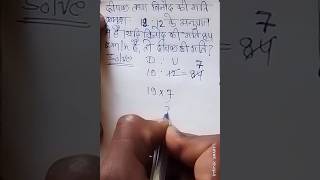 दीपक तथा विनोद की गति
18 : 12 के अनुपात
में है। यदि विनोद की गति 84
km/h है, तो दीपक की गति?
Solve D V 7
18 : 12 = 84
19 × 7
7
84